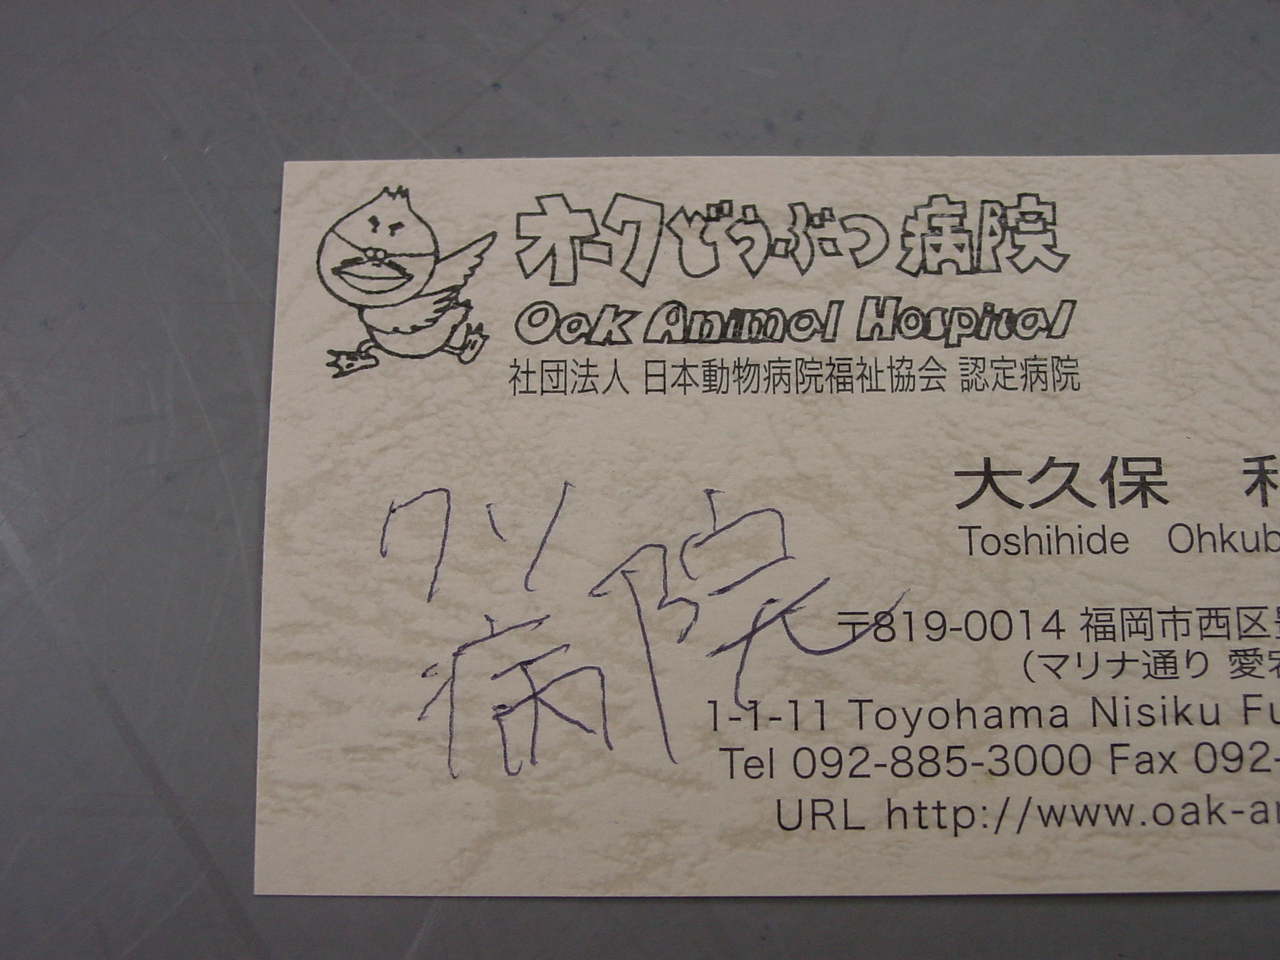 オークどうぶつ病院
Oak Animal Hospital
社団法人 日本動物病院福祉協会 認定病院
大久保
Toshihide Ohkub
クソ
病院
〒819-0014 福岡市西区
(マリナ通り 愛宕
1-1-11 Toyohama Nisiku Fu
Tel 092-885-3000 Fax 092-
URL http://www.oak-an